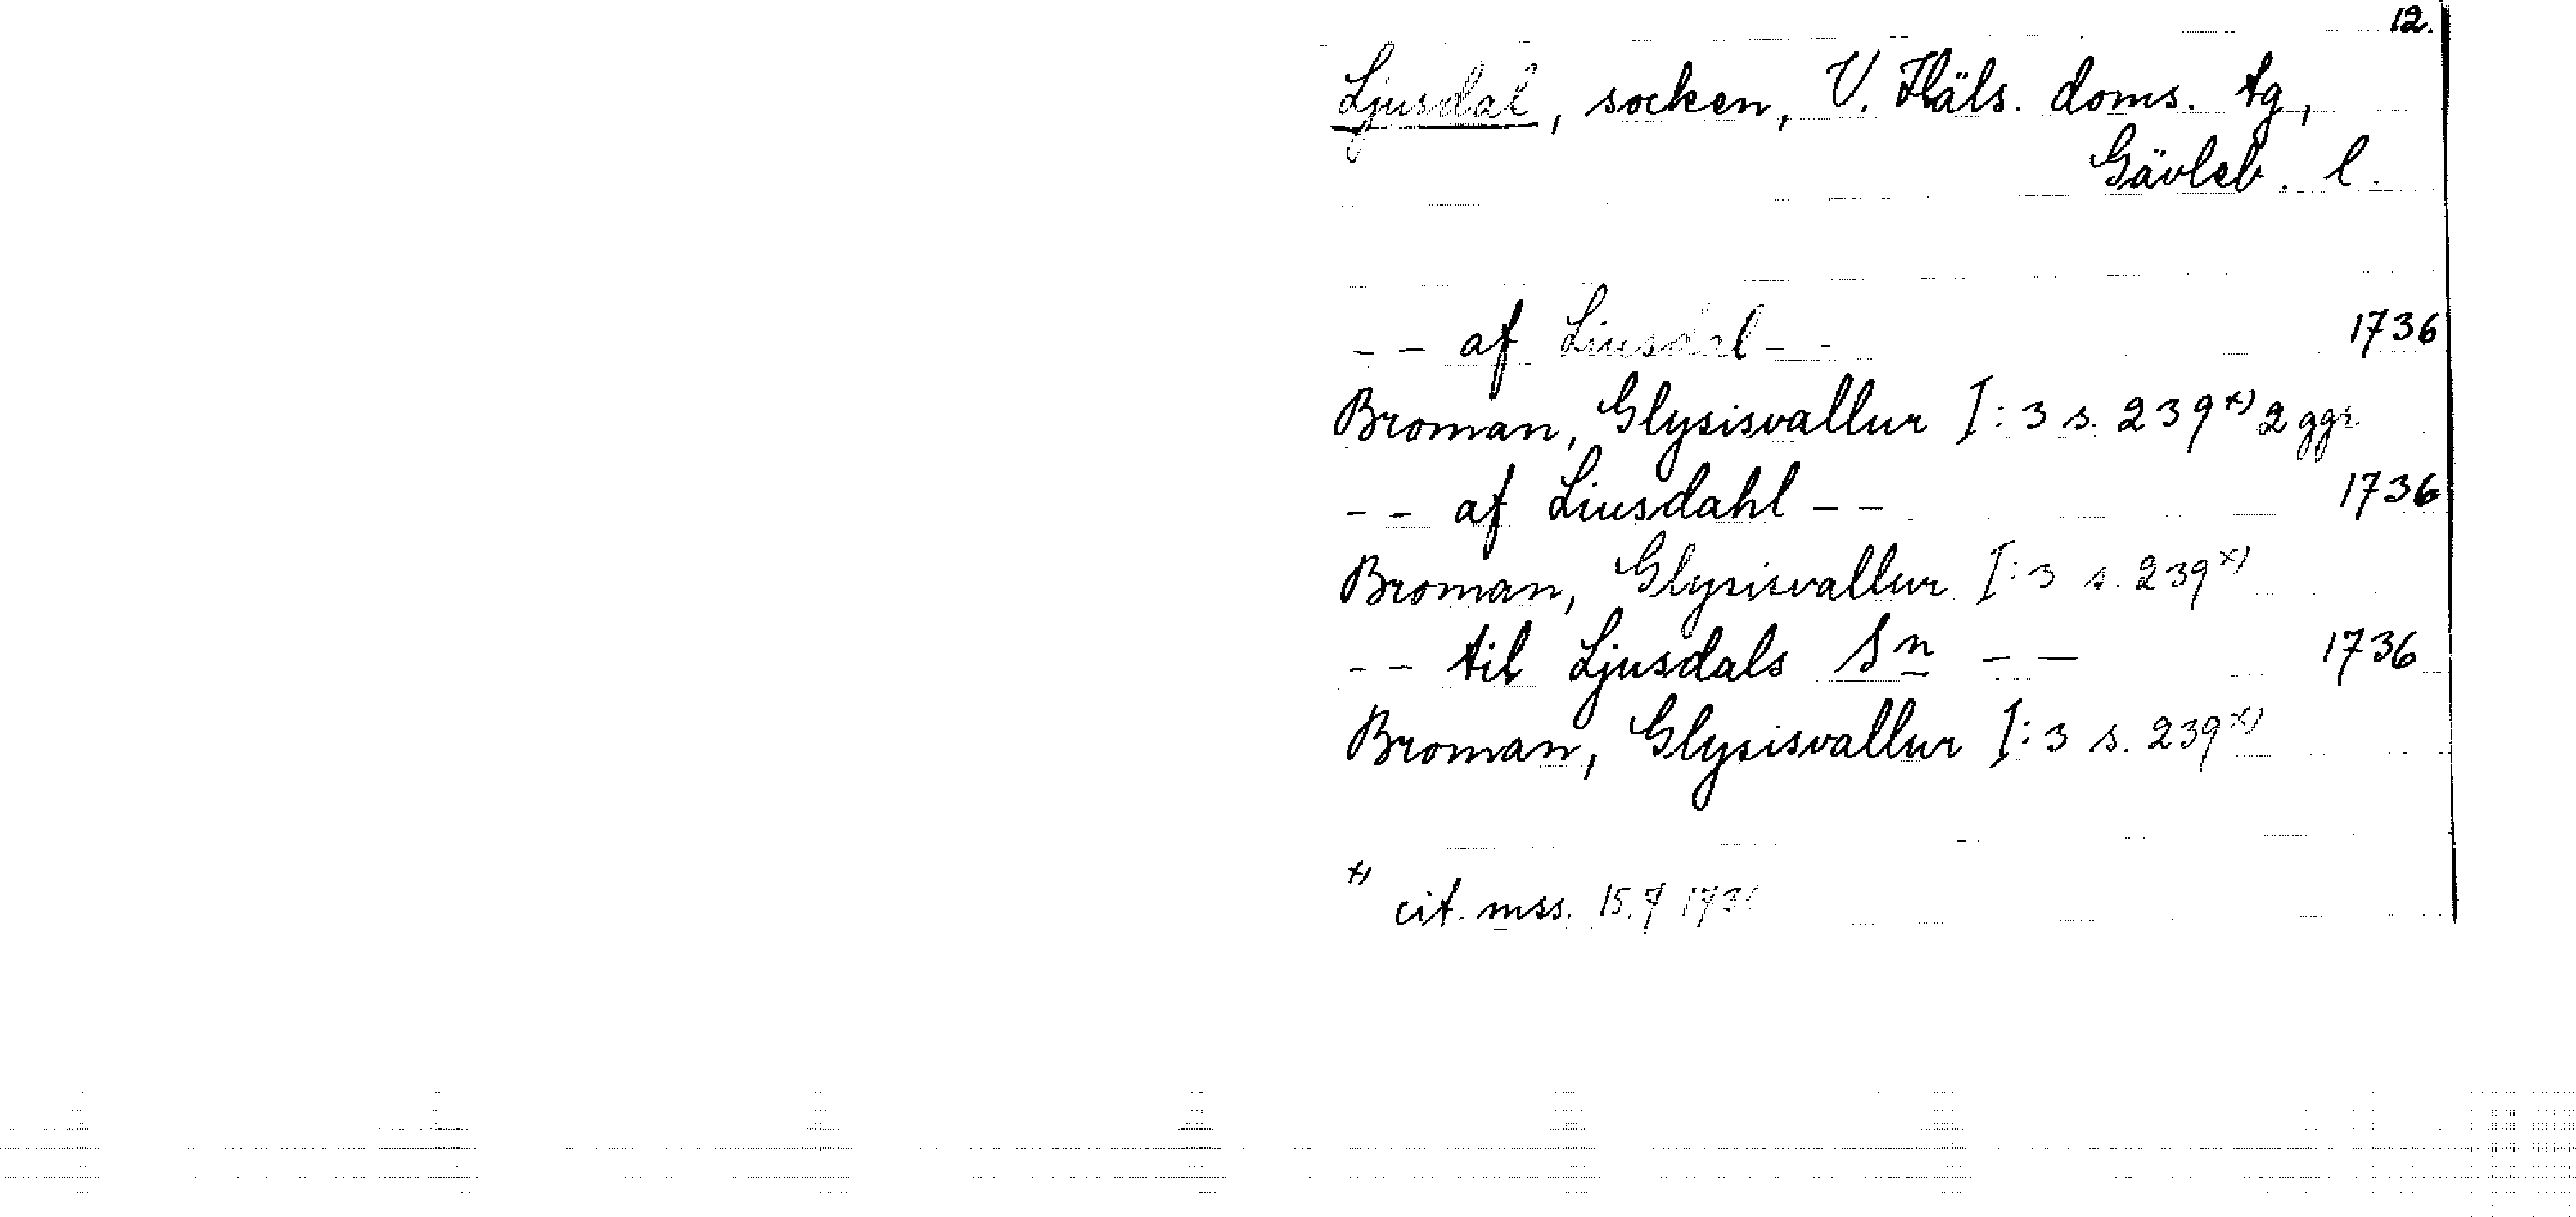 12.
Ljusdal, socken, V. Häls. doms. tg,
Gävleb. l.
-- af Liusdal -- 1736
Broman, Glysisvallur I:3 s. 239x) 2 ggr
-- af Liusdahl -- 1736
Broman, Glysisvallur I:3 s. 239x)
-- til Ljusdals Sn -- 1736
Broman, Glysisvallur I:3 s. 239x)
x) cit. mss. 15.7